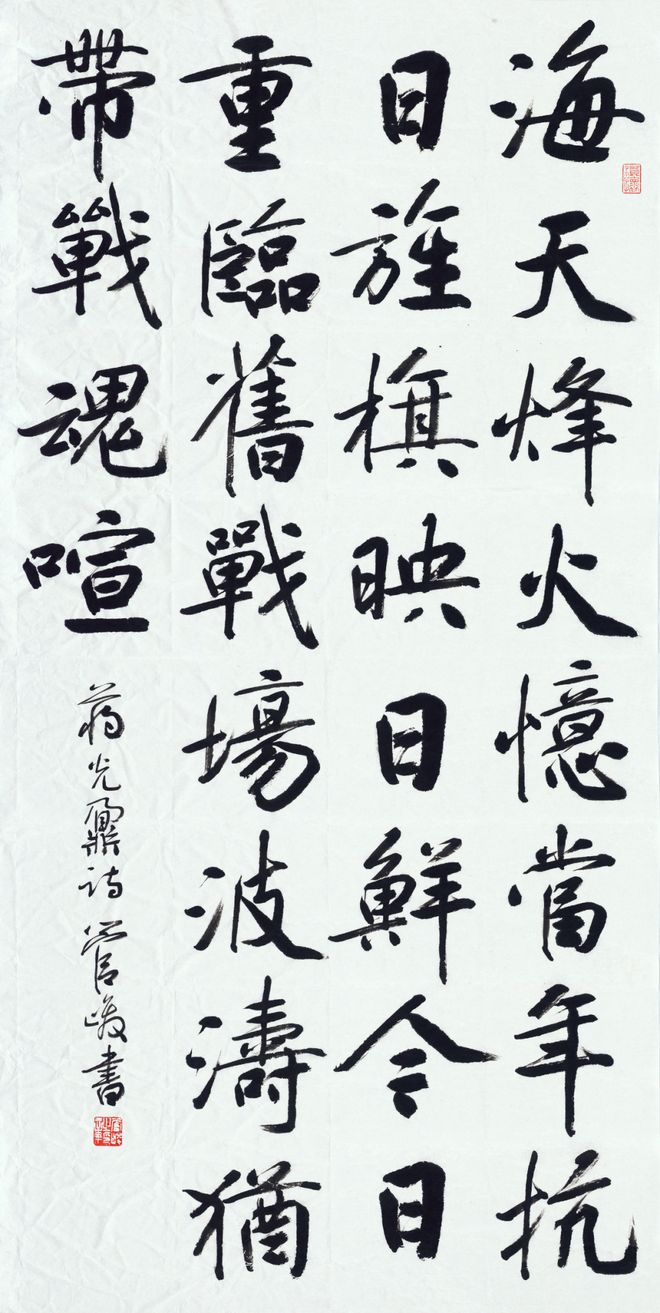 海天烽火憶當年抗
日旌旗映日鮮今日
重臨舊戰場波濤猶
帶戰魂喧
蔣光鼐詩管峻書